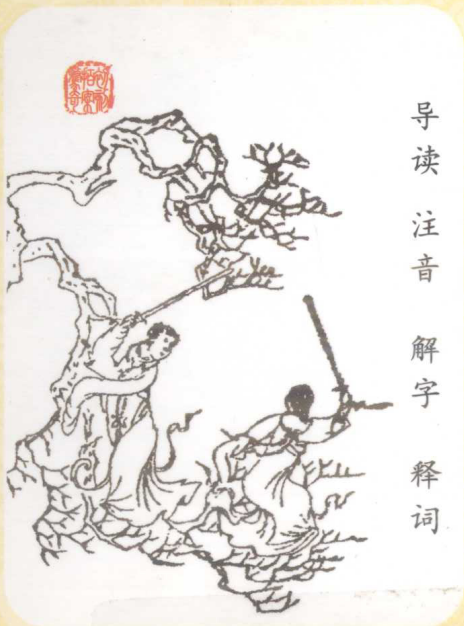 导读 注音 解字 释词